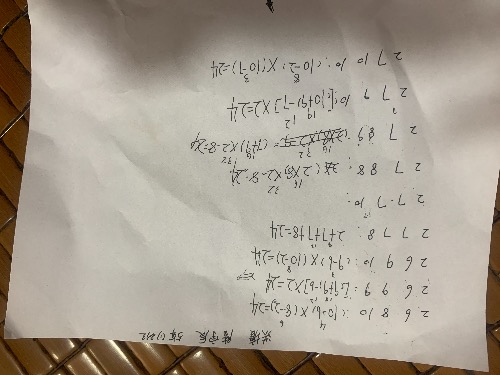 2 6 8 10: (10-6)×(8-2)=24
2 6 9 9: [(9+9)-6]×2=24
2 6 9 10: (9-6)×(10-2)=24
2 7 7 8: 2+7+7+8=24
2 7 7 10:
2 7 8 8: (2×8)×2-8=24
2 7 8 9: (7+9)×2-8=24
2 7 9 10: [(10+9)-7]×2=24
2 7 10 10: (10-2)×(10-7)=24